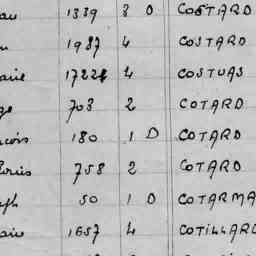 au 1339 3 D COSTARD
u 1987 4 COSTARD
arie 17224 4 COSTUAS
ge 703 2 COTARD
çois 180 1 D COTARD
758 2 COTARD
ph 50 1 D COTARMA
aire 1657 4 COTILLARD